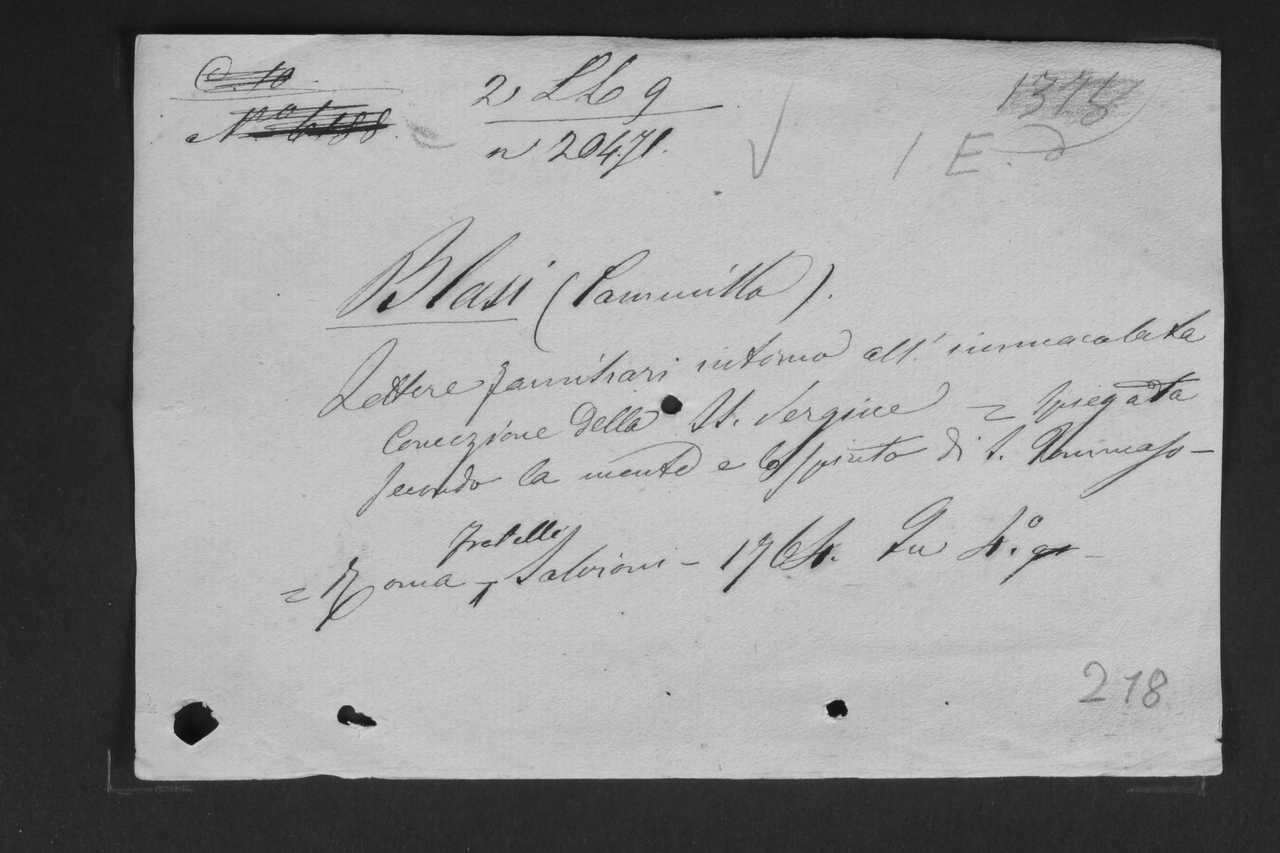 C. 10
2 LL 9
1375
N.º 6188.
n 20471.
1 E. d
Blasi (Cammilla).
Lettere familiari intorno all' immacolata
Concezione della SS. Vergine = Spiegata
secondo la mente e lo spirito di S. Tommaso –
fratelli
= Roma – Salvioni – 1764. In 4.º
218